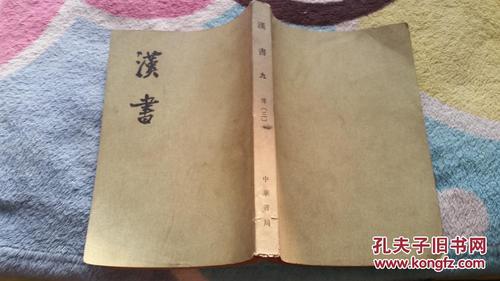 漢書
漢書 九 傳(三)
中華書局
孔夫子旧书网
www.kongfz.com